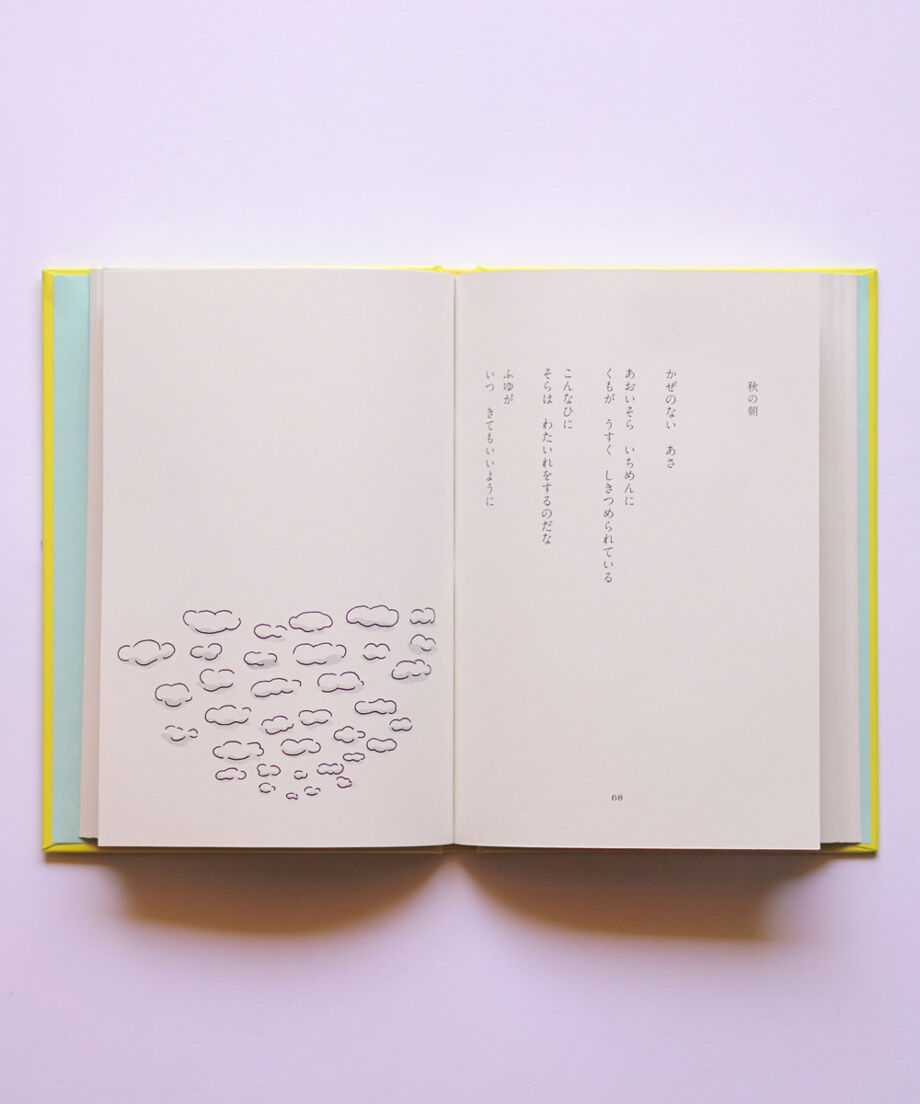 秋の朝
かぜのない　あさ
あおいそら　いちめんに
くもが　うすく　しきつめられている
こんなひに
そらは　わたいれをするのだな
ふゆが
いつ　きてもいいように
68